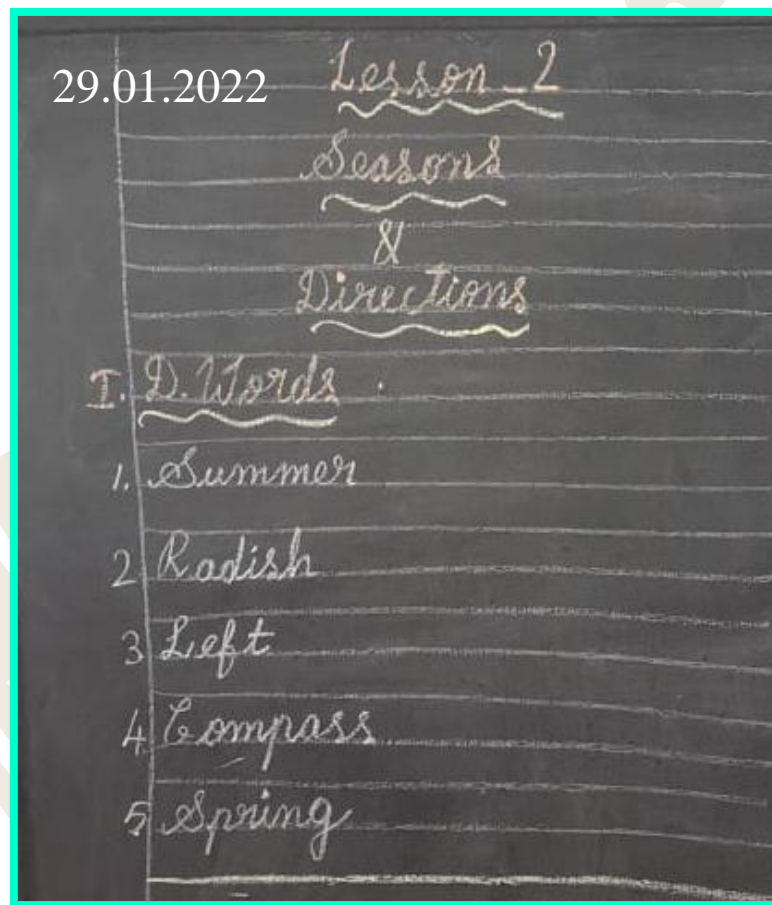 29.01.2022 Lesson_2
Seasons
&
Directions
I. D. Words
1. Summer
2 Radish
3 Left
4 Compass
5 Spring